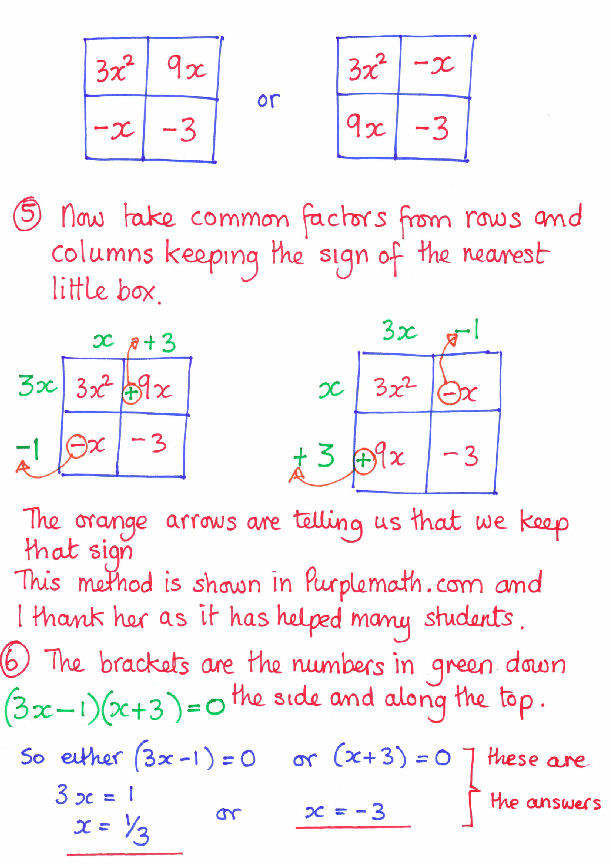 3x² 9x 3x² -x
or
-x -3 9x -3
⑤ Now take common factors from rows and
columns keeping the sign of the nearest
little box.
x +3 3x -1
3x 3x² +9x x 3x² -x
-1 -x -3 +3 +9x -3
The orange arrows are telling us that we keep
that sign
This method is shown in Purplemath.com and
I thank her as it has helped many students.
⑥ The brackets are the numbers in green down
(3x-1)(x+3)=0 the side and along the top.
So either (3x-1)=0 or (x+3)=0 these are
3x = 1
the answers
x = 1/3 or x = -3